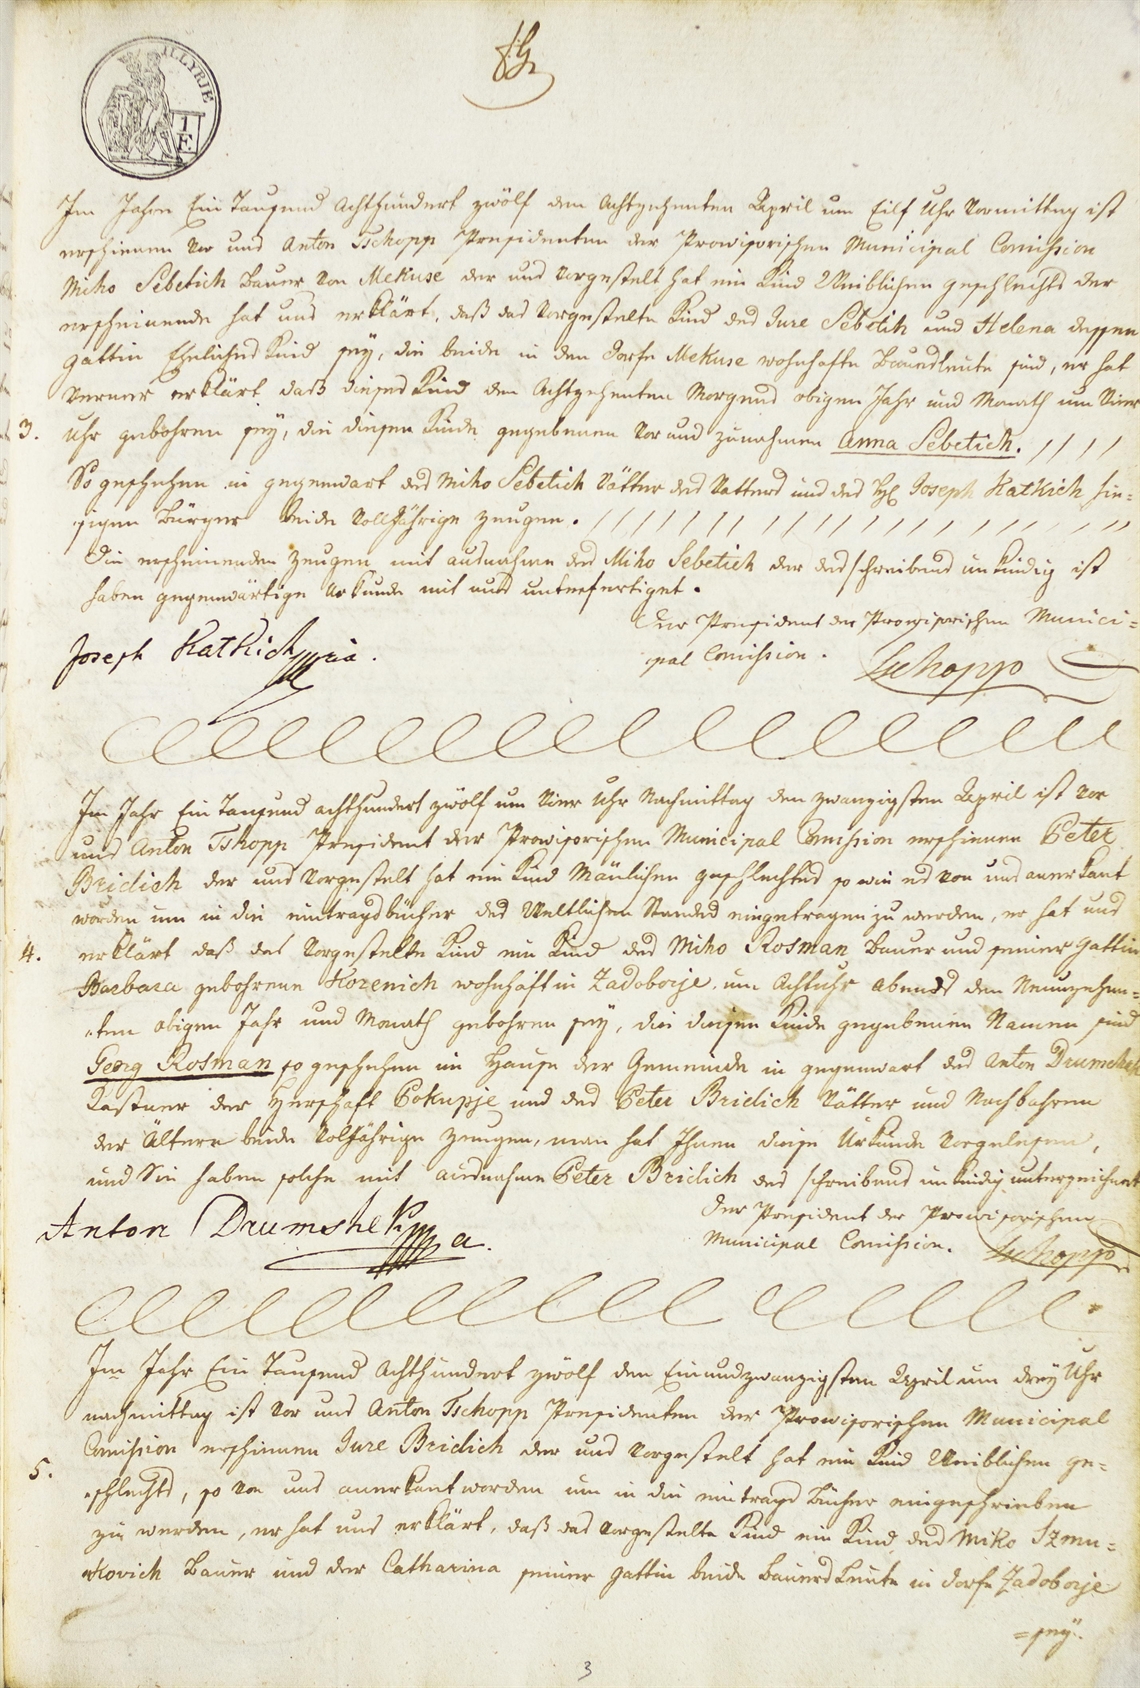 ILLYRIE
1
F.
Im Jahre Ein Tausend Achthundert zwölf den Achtzehenten April um Eilf Uhr Vormittag ist
erschienen vor uns Anton Tschopp Præsidenten der Prowisorischen Municipal Comission
Miho Sebetich Bauer von Mekuse der uns vorgestelt hat ein Kind Weiblichen geschlechts der
erscheinende hat uns erklärt, daß das vorgestelte Kind des Jure Sebetich und Helena dessen
gattin Ehelichs Kind seÿ, die beide in den Dorfe Mekuse wohnhafte Bauersleute sind, er hat
verner erklärt daß dieses Kind den Achtzehenten Morgens obigen Jahr und Monath um Vier
3. Uhr gebohren seÿ, die diesen Kinde gegebenen Vor und zunahmen Anna Sebetich.
So geschehen in gegenwart des Miho Sebetich Vätter des Vatters und des H. Joseph Kathich hie=
sigen Bürger beide volljährige Zeugen.
Die erscheinenden Zeugen mit ausnahme des Miho Sebetich der des schreibens unkündig ist
haben gegenwärtige Urkunde mit uns unterfertiget.
Der Præsident der Prowisorischen Munici=
pal Comission.
Joseph Kathich mia.
Tschopp
Im Jahr Ein Tausend achthundert zwölf um Vier Uhr Nachmittag den zwanzigsten April ist vor
uns Anton Tshopp Præsident der Prowisorischen Municipal Comission erschienen Peter
Bridich der uns vorgestelt hat ein Kind Mänlichen geschlechtes so wie es von uns anerkant
worden um in die eintragsbücher des Weltlichen Standes eingetragen zu werden, er hat uns
4. erklärt daß das vorgestelte Kind ein Kind des Miho Rosman Bauer und seiner Gattin
Barbara gebohrene Korenich wohnhaft in Zadoborje um Acht uhr Abends den Neunzehen=
ten obigen Jahr und Monath gebohren seÿ, die diesen Kinde gegebenen Namen sind
Georg Rosman so geschehen im Hause der Gemeinde in gegenwart des Anton Drumshek
Kastner der Herschaft Pokupje und des Peter Bridich Vätter und Nachbahren
der Ältern beide Volljährige Zeugen, man hat Ihnen diese Urkunde vorgelesen,
und Sie haben solche mit ausnahme Peter Bridich des schreibens unkündig unterzeichnet
Der Præsident der Prowisorischen
Municipal Comission.
Anton Drumshek
Tschopp
Im Jahr Ein Tausend Achthundert zwölf den Einundzwanzigsten April um dreÿ Uhr
nachmittag ist vor uns Anton Tschopp Præsidenten der Prowisorischen Municipal
Comission erschienen Jure Bridich der uns vorgestelt hat ein Kind Weiblichen ge=
5. schlechts, so von uns anerkant worden um in die eintrags Bücher eingeschrieben
zu werden, er hat uns erklärt, daß das vorgestelte Kind ein Kind des Miko Szmu=
kovich Bauer und der Catharina seiner gattin beide Bauers Leute in dorfe Zadoborje
=seÿ.
3